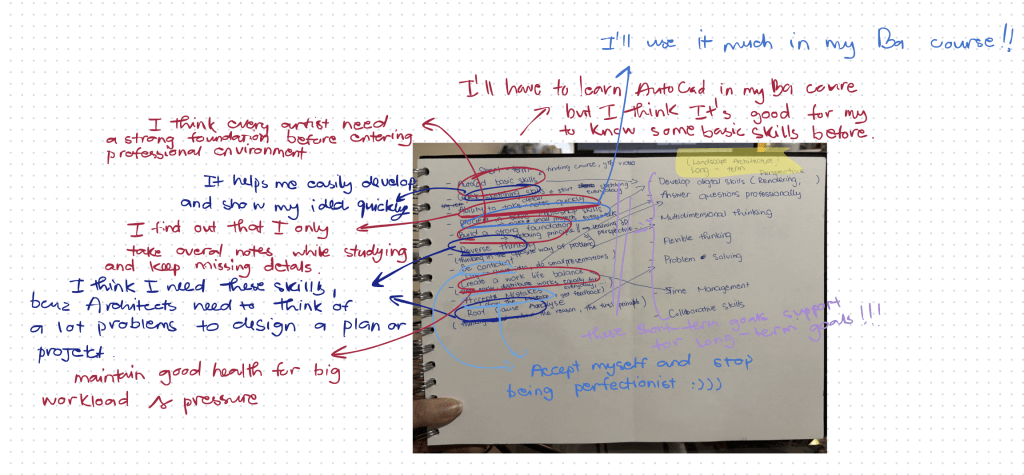 I'll use it much in my Ba course!!
I'll have to learn AutoCad in my Ba course
but I think It's good for my
to know some basic skills before.
I think every artist need
a strong foundation before entering
professional environment
It helps me easily develop
and show my idea quickly
I find out that I only
take overal notes while studying
and keep missing detals.
I think I need these skills,
benz Architects need to think of
a lot problems to design a plan or
projekt.
maintain good health for big
workload & pressure
Short-term
- AutoCad basic skills
- Ability to take notes quickly
- Build a strong foundation
- Reverse thinking
- Be confident
- Create a work life balance
- Accept Mistakes
- Root Cause Analyse
(Landscape Architecture)
Long-term
Develop digital skills (Rendering, )
Answer questions professionally
Multidimensional thinking
Flexible thinking
Problem solving
Time Management
Collaborative Skills
these short-term goals support
for long-term goals!!!
Accept myself and stop
being perfectionist :)))